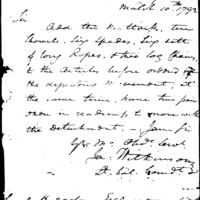 March 10th 1792
Sir
Add two Mattocks, ten
Shovels, Six Spades, Six sett
of long Ropes, & two log Chains,
to the Articles before ordered for
the depending Movement, at
the same time, have two pair
oxen in readiness, to move with
the Detachment — I am Sir
Yr. M. Obd. Servt
Ja: Wilkinson
Lt. Col. Comdt.